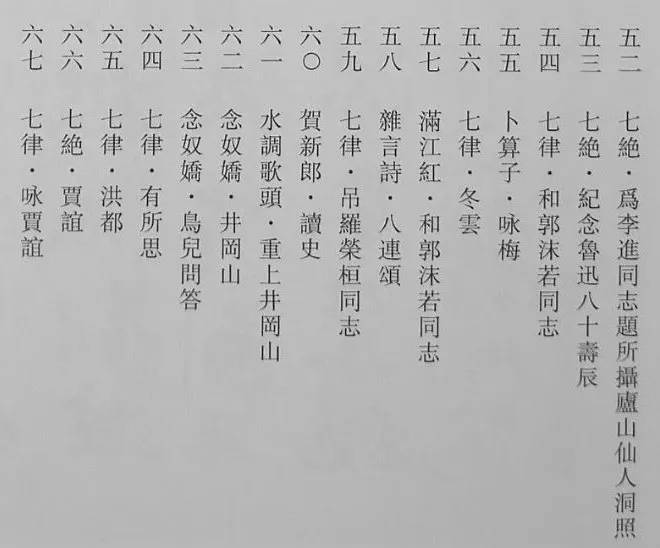 五二　七絶・爲李進同志題所攝廬山仙人洞照
五三　七絶・紀念魯迅八十壽辰
五四　七律・和郭沫若同志
五五　卜算子・咏梅
五六　七律・冬雲
五七　滿江紅・和郭沫若同志
五八　雜言詩・八連頌
五九　七律・吊羅榮桓同志
六〇　賀新郎・讀史
六一　水調歌頭・重上井岡山
六二　念奴嬌・井岡山
六三　念奴嬌・鳥兒問答
六四　七律・有所思
六五　七律・洪都
六六　七絶・賈誼
六七　七律・咏賈誼